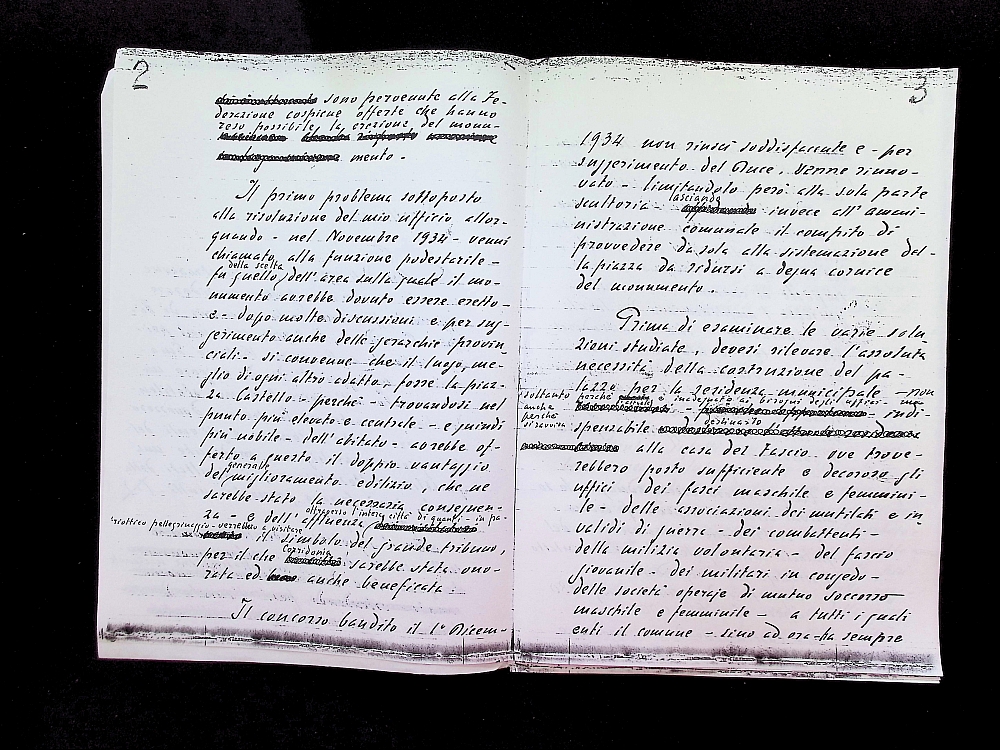 2
sono pervenute alla Fe-
derazione cospicue offerte che hanno
reso possibile la erezione del monu-
mento.
Il primo problema sottoposto
alla risoluzione del mio ufficio allor-
quando - nel Novembre 1934 - venni
chiamato alla funzione podestarile -
della scelta
fu quello dell'area sulla quale il mo-
numento avrebbe dovuto essere eretto
e - dopo molte discussioni e per sug-
gerimento anche delle gerarchie provin-
ciali - si convenne che il luogo, me-
glio di ogni altro adatto, fosse la piaz-
za Castello - perché - trovandosi nel
punto più elevato e centrale - e quindi
più nobile - dell'abitato - avrebbe of-
ferto a questo il doppio vantaggio
generale
del miglioramento edilizio, che ne
sarebbe stato la necessaria conseguen-
za - e dell'affluenza
attraverso l'intera città di quanti - in pa-
triottico pellegrinaggio - verrebbero a visitare
il simbolo del grande tribuno,
Corridonia
per il che sarebbe stata ono-
rata ed anche beneficata.
Il concorso bandito il 1° Dicem-
3
1934 non riuscì soddisfacente e - per
suggerimento del Duce, venne rinno-
vato - limitandolo però alla sola parte
lasciando
scultoria - invece all'ammi-
nistrazione comunale il compito di
provvedere da sola alla sistemazione del-
la piazza da ridursi a degna cornice
del monumento.
Prima di esaminare le varie solu-
zioni studiate, devesi rilevare l'assoluta
necessità della costruzione del pa-
lazzo per la residenza municipale - non
soltanto perché l'attuale è inadeguato ai bisogni degli uffici -
anche perché si ravvisa - indi-
destinarlo
spensabile
alla casa del Fascio ove trove-
rebbero posto sufficiente e decoroso gli
uffici dei fasci maschile e femmini-
le - delle associazioni dei mutilati e in-
validi di guerra - dei combattenti -
della milizia volontaria - del fascio
giovanile - dei militari in congedo -
delle società operaje di mutuo soccorso
maschile e femminile - a tutti i quali
enti il comune - sino ad ora - ha sempre